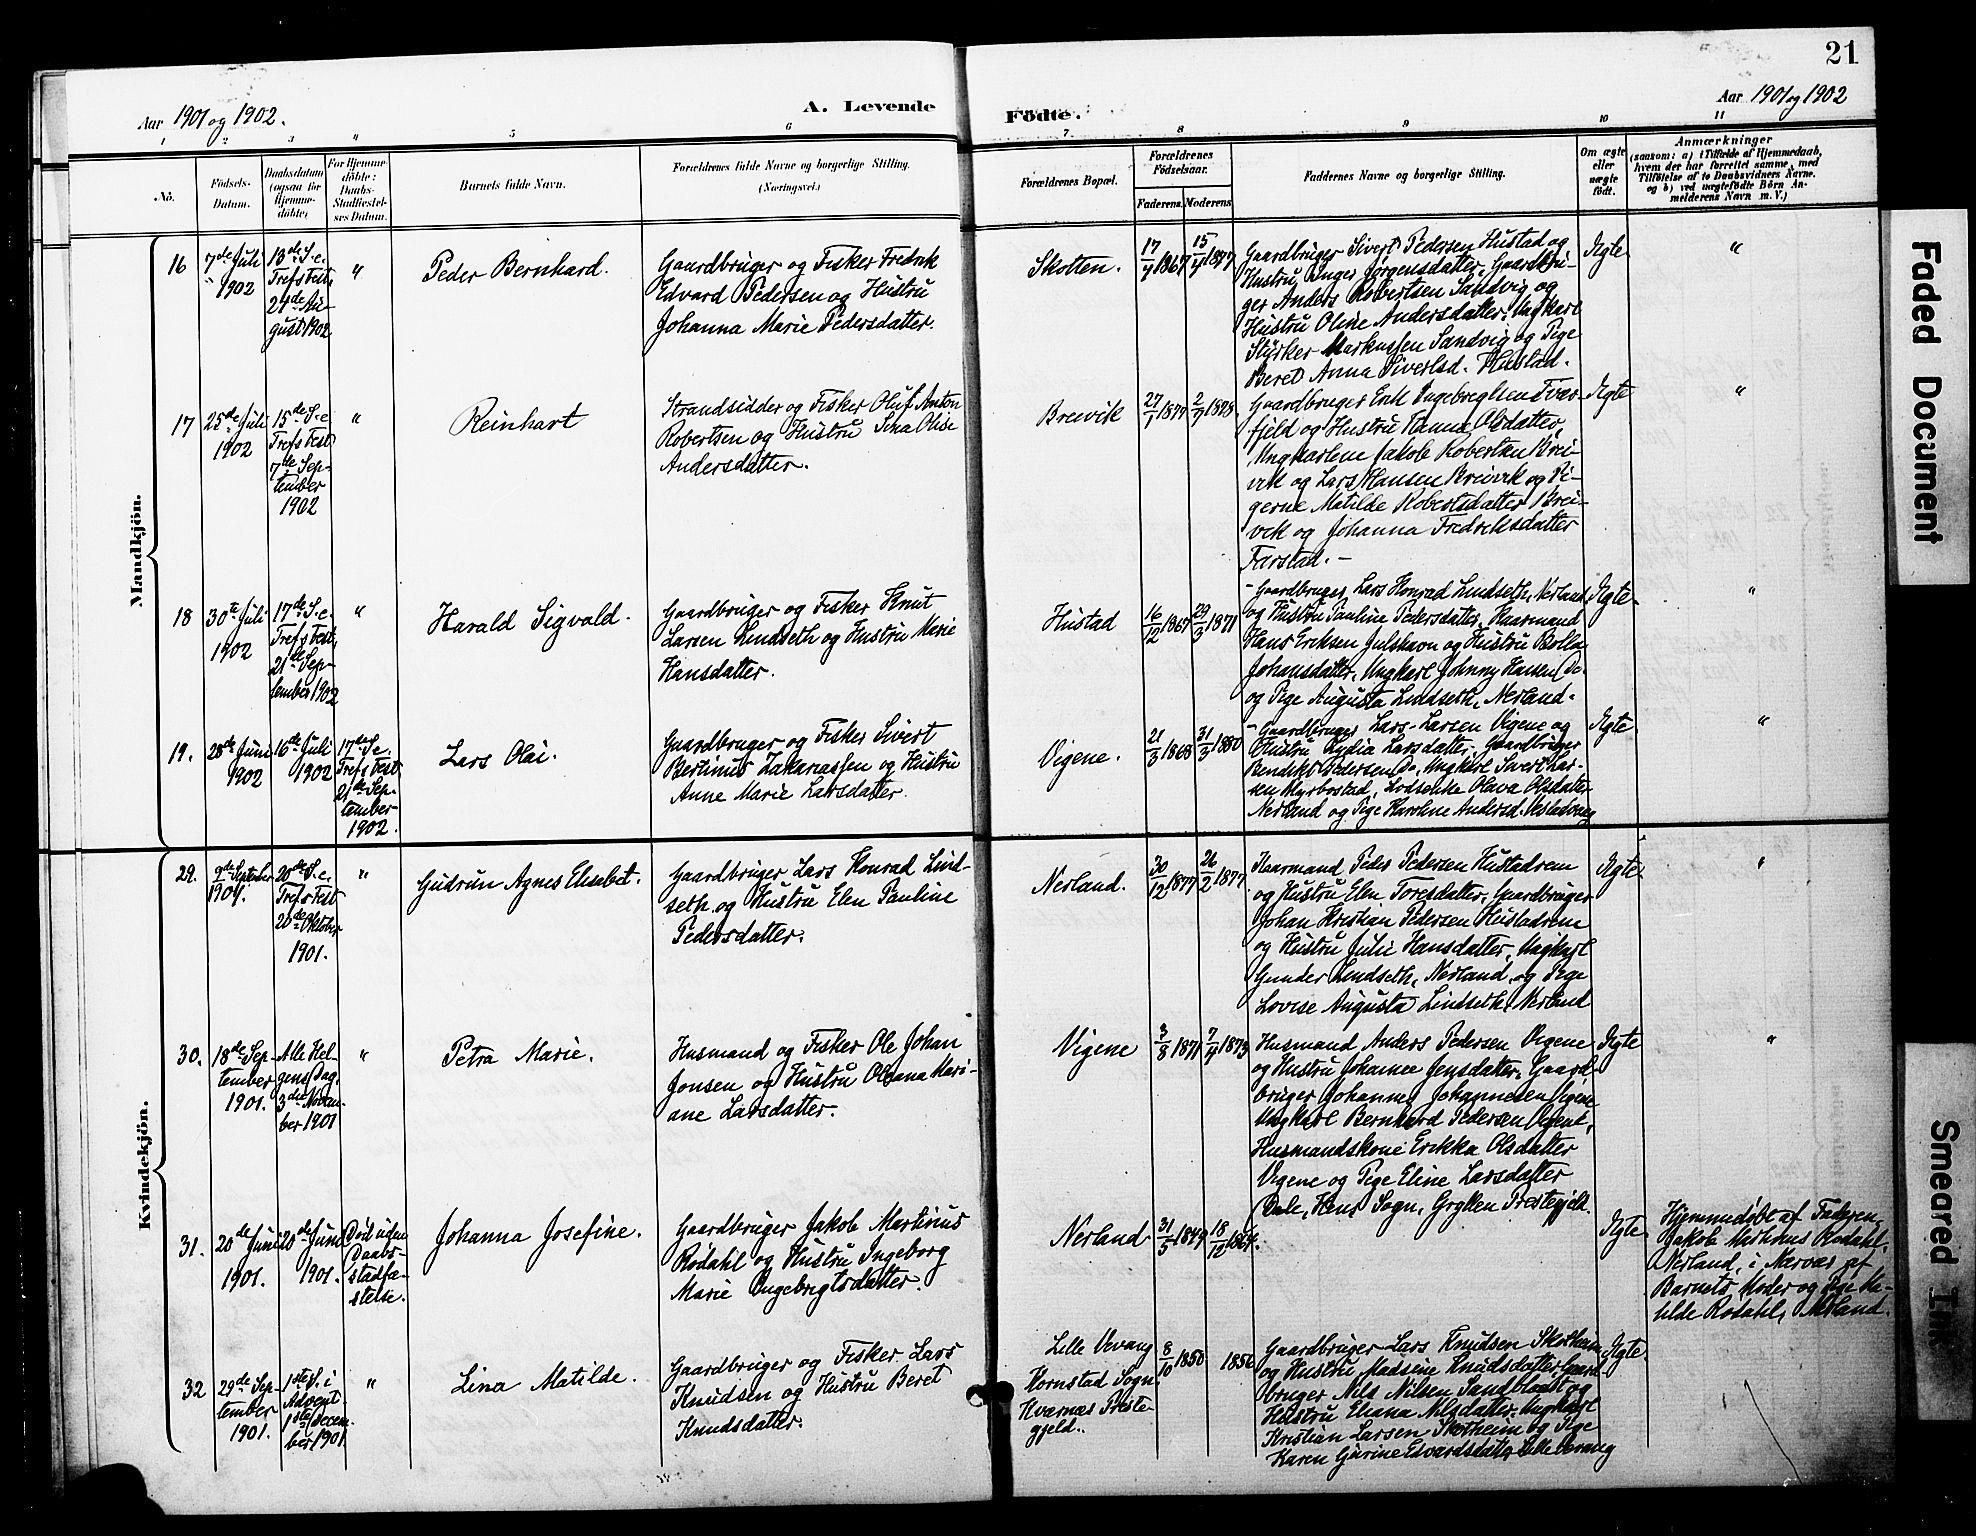 21
Aar 1901 og 1902.
A. Levende
Födte.
Aar 1901 og 1902
1 2 3 4 5 6 7 8 9 10 11
No.
Födsels-
Datum.
Daabsdatum
(ogsaa for
Hjemme-
döbte;
For Hjemme-
döbte:
Daabs-
Stadfæstel-
ses Datum.
Barnets fulde Navn.
Forældrenes fulde Navne og borgerlige Stilling.
(Næringsvei.)
Forældrenes Bopæl.
Forældrenes
Födselsaar.
Faderens. Moderens
Faddernes Navne og borgerlige Stilling.
Om ægte
eller
uægte
födt.
Anmærkninger
(saasom: a) i Tilfælde af Hjemmedaab,
hvem der har forrettet samme, med
Tilföielse af to Daabsvidners Navne,
og b) ved uægtefödte Börn An-
melderens Navn m. V.)
Mandkjön.
16
7de Juli
1902
13de S. e.
Tref. Fest,
24de Au-
gust 1902
"
Peder Bernhard.
Gaardbruger og Fisker Fredrik
Edvard Pedersen og Hustru
Johanna Marie Pedersdatter.
Skotten.
17/7 1867
15/4 1877
Gaardbruger Sivert Pedersen Hustad og
Hustru Inger Jörgensdatter, Gaardbru-
ger Anders Robertsen Sandvig og
Hustru Oline Andersdatter, Ungkarl
Styrker Markussen Sandvig og Pige
Beret Anna Sivertsd. Hustad.
Ægte
"
17
25de Juli
1902
15de S. e
Tref. Fest
7de Sep-
tember
1902
"
Reinhart
Strandsidder og Fisker Oluf Anton
Robertsen og Hustru Sina Olise
Andersdatter.
Breivik
27/1 1877
2/7 1878
Gaardbruger Erik Ingebregtsen Tvær-
fjeld og Hustru Hanna Olsdatter,
Ungkarlene Jakob Robertsen Brei-
vik og Lars Hansen Breivik og Pi-
gerne Matilde Robertsdatter Brei-
vik og Johanna Fredriksdatter
Farstad. -
Ægte
"
18
30te Juli
1902
17de S. e.
Tref. Fest,
21de Sep-
tember 1902
"
Harald Sigvald.
Gaardbruger og Fisker Knut
Larsen Lindseth og Hustru Marie
Hansdatter.
Hustad
16/12 1867
29/3 1871
- Gaardbruger Lars Konrad Lindseth, Nerland
og Hustru Pauline Pedersdatter, Kaarmand
Hans Eriksen Julshavn og Hustru Bolla
Johansdatter, Ungkarl Johnny Hansen Do
og Pige Augusta Lindseth, Nerland.
Ægte
"
19.
28de Juni
1902
16de Juli
1902
17de S. e.
Tref. Fest
21de Sep-
tember
1902.
Lars Olai.
Gaardbruger og Fisker Sivert
Bertinus Zakariassen og Hustru
Anne Marie Larsdatter.
Vigene.
21/3 1868
31/3 1880
- Gaardbruger Lars Larsen Vigene og
Hustru Lydia Larsdatter, Gaardbruger
Bendikt Pedersen Do, Ungkarl Sivert Lar-
sen Myrbostad, Lodsenke Olava Olsdatter
Nerland og Pige Karoline Andersd.
Ægte
"
Kvindekjön.
29.
9de September
1901.
20de S. e.
Tref. Fest
20de Oktober
1901.
"
Gudrun Agnes Elisabet.
Gaardbruger Lars Konrad Lind-
seth og Hustru Elen Pauline
Pedersdatter.
Nerland.
30/12 1877
26/2 1877
Kaarmand Peder Pedersen Hustadrem
og Hustru Elen Toresdatter, Gaardbruger
Johan Kristian Pedersen Hustadrem
og Hustru Julie Hansdatter, Ungkarl
Gunder Lindseth, Nerland, og Pige
Lovise Augusta Lindseth, Nerland
Ægte
"
30.
18de Sep-
tember
1901.
Alle Hel-
gens Dag,
3die Novem-
ber 1901
"
Petra Marie.
Husmand og Fisker Ole Johan
Jonsen og Hustru Oleana Mari-
ane Larsdatter.
Vigene
3/8 1871
7/4 1873
Husmand Anders Pedersen Vigene
og Hustru Johanna Jensdatter, Gaard-
bruger Johannes Johannesen Vigene
Ungkarl Bernhard Pedersen Vigene,
Husmandskone Erikka Olsdatter
Vigene og Pige Eline Larsdatter
Dale, Hens Sogn, Grytten Prestegjeld.
Ægte
"
31.
20de Juni
1901.
20de Juni
1901.
Död uden
Daabs-
stadfæ-
stelse.
Johanna Josefine.
Gaardbruger Jakob Martinus
Rödahl og Hustru Ingeborg
Marie Ingebrigtsdatter.
Nerland
31/5
18/12
Ægte
Hjemmedöbt af Faderen
Jakob Martinus Rödahl,
Nerland, i Nærvær af
Barnets Moder og Pige Ma-
tilde Rödahl, Nerland.
32
29de Sep-
tember
1901.
1ste S. i
Advent
1ste Decem-
ber 1901.
"
Lina Matilde.
Gaardbruger og Fisker Lars
Knudsen og Hustru Beret
Knudsdatter.
Lille Vevang
Kornstad Sogn,
Kværnæs Preste-
gjeld.
8/10 1850
1856
Gaardbruger Lars Knudsen Skotheim
og Hustru Madsine Knudsdatter, Gaard-
bruger Nils Nilsen Sandblaast og
Hustru Eliana Nilsdatter, Ungkarl
Kristian Larsen Skotheim og Pige
Karen Gurine Edvardsdatter Lille Vevang
Ægte.
Faded Document
Smeared Ink